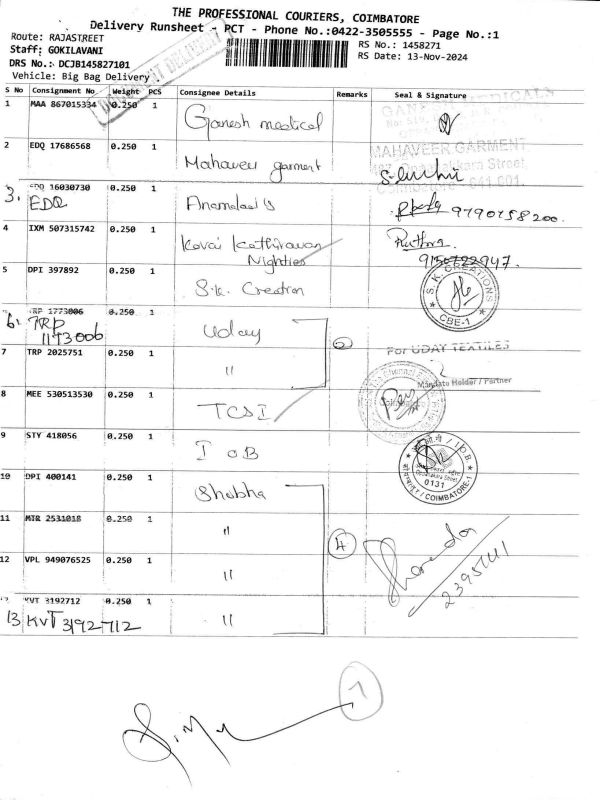 THE PROFESSIONAL COURIERS, COIMBATORE
Delivery Runsheet - PCT - Phone No.:0422-3505555 - Page No.:1
Route: RAJASTREET
Staff: GOKILAVANI
DRS No.: DCJB145827101
Vehicle: Big Bag Delivery
RS No.: 1458271
RS Date: 13-Nov-2024
S No Consignment No Weight PCS Consignee Details Remarks Seal & Signature
1 MAA 867015334 0.250 1 Ganesh medical
GANESH MEDICALS
2 EDQ 17686568 0.250 1 Mahaveer garment
MAHAVEER GARMENT
3. EDQ 16030730 0.250 1
EDQ
9790758200
4 IXM 507315742 0.250 1 Kovai Kathiravan
Nighties
9150722947
5 DPI 397892 0.250 1 S.K. Creation
S.K. CREATIONS
CBE-1
6. TRP 1773006 0.250 1 Uday
TRP
1173006
2
7 TRP 2025751 0.250 1 "
For UDAY TEXTILES
Mandate Holder / Partner
8 MEE 530513530 0.250 1 TCSI
9 STY 418056 0.250 1 IOB
I.O.B
0131
COIMBATORE-1
10 DPI 400141 0.250 1 Shobha
11 MTR 2531018 0.250 1 "
4
12 VPL 949076525 0.250 1 "
13 KVT 3192712 0.250 1 "
KVT 3192712
7